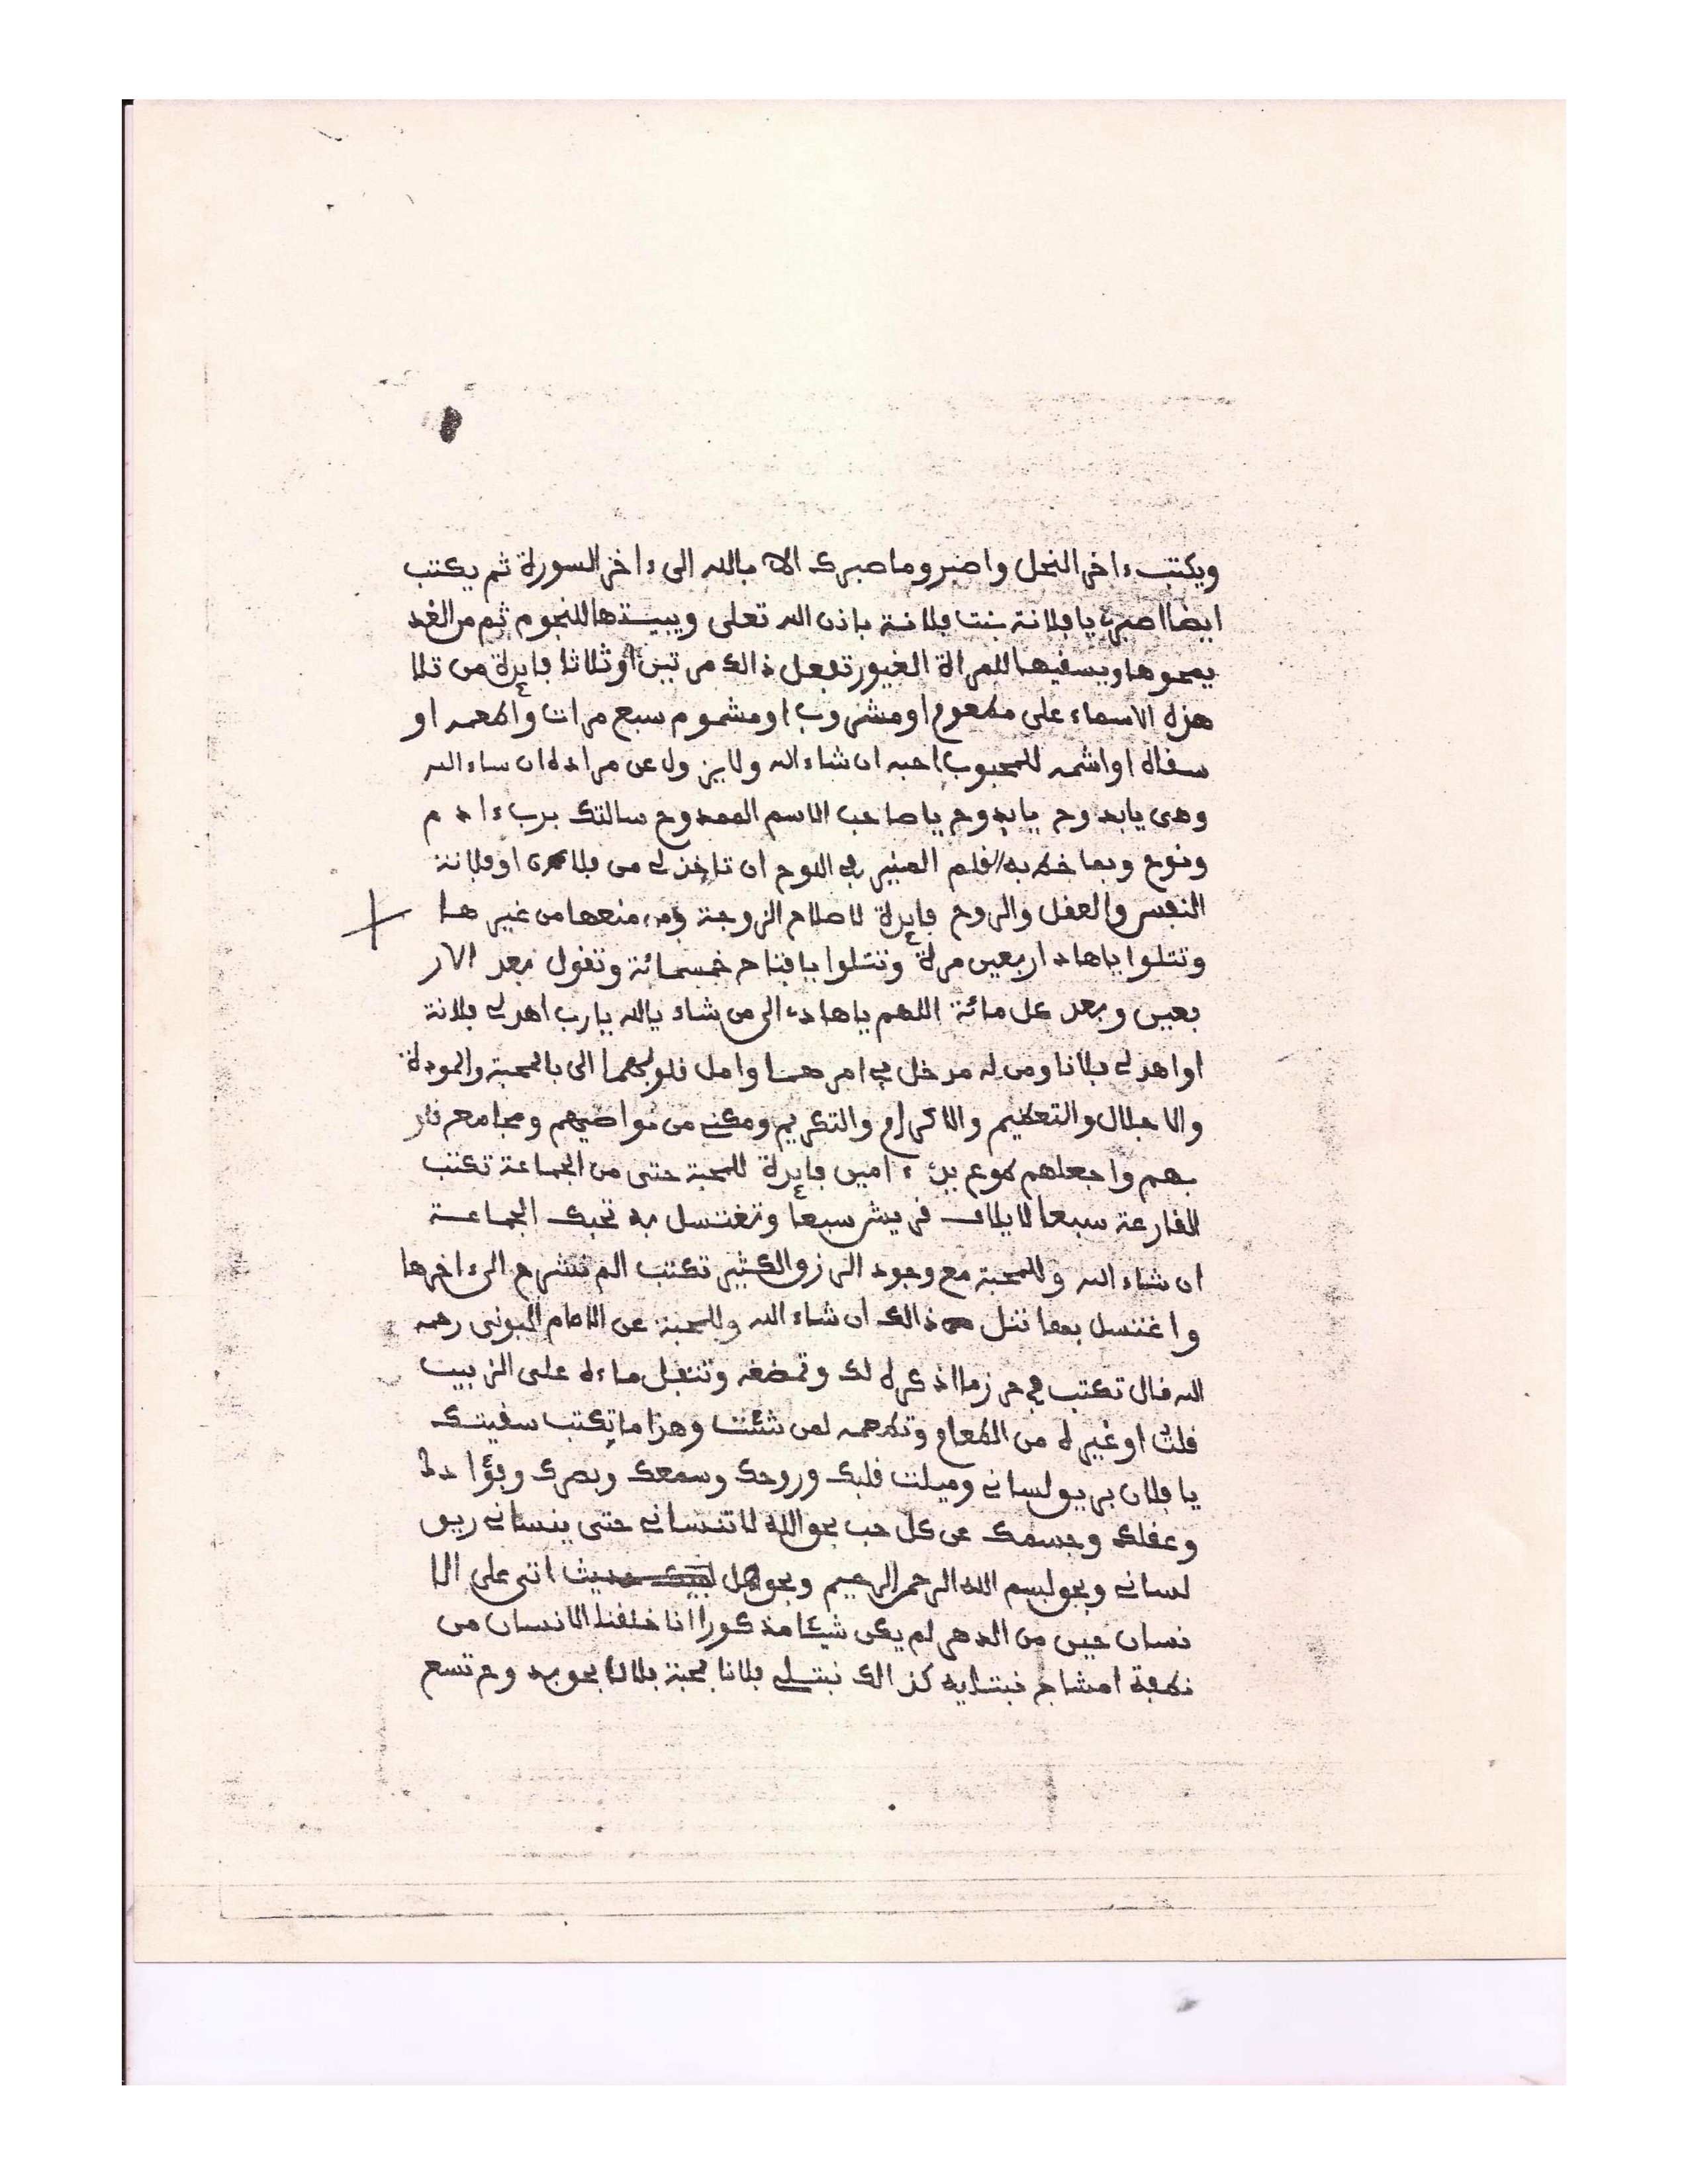 ويكتب ءاخر النحل واصبر وما صبرك الا بالله الى ءاخر السورة ثم يكتب
ايضا اصبرى يا فلانة بنت فلانة باذن الله تعلى ويبيتها للنجوم ثم من الغد
يمحوها ويسقيها للمراة الغيور تفعل ذالك مرتين او ثلاثا فايدة من تلا
هذه الاسماء على مطعوم او مشروب او مشموم سبع مرات واطعمه او
سقاه او اشمه للمحبوب احبه ان شاء الله ولا يزول عن مراده ان شاء الله
وهى يا بدوح يا بدوح يا صاحب الاسم الممدوح سالتك برب ءادم
ونوح وبما خط به القلم المنير في اللوح ان تاخذ لي من فلان او فلانة
النفس والعقل والروح فايدة لاصلاح الزوجة ومن منعها من غيرها
وتتلوا يا هاد اربعين مرة وتتلوا يا فتاح خمسمائة وتقول بعد الار
بعين وبعد كل مائة اللهم يا هاد الى من شاء يا الله يا رب اهد لي فلانة
او اهد لي فلانا ومن له مدخل في امرهما وامل قلوبهما الى بالمحبة والمودة
والاجلال والتعظيم والاكرام والتكريم ومكني من نواصيهم ومجامع قلو
بهم واجعلهم طوع يدي ءامين فايدة للمحبة حتى من الجماعة تكتب
القارعة سبعا لايلاف قريش سبعا وتغتسل به تحبك الجماعة
ان شاء الله وللمحبة مع وجود الرزق الكثير تكتب الم نشرح الى ءاخرها
واغتسل بمها تنل ذالك ان شاء الله وللمحبة عن الامام البونى رحمه
الله قال تكتب في حرز ما اذكره لك وتمضغه وتتفل ماءه على الزبيب
قلت او غيره من الطعام وتطعمه لمن شئت وهذا ما تكتب سقيتك
يا فلان بريق لساني وميلت قلبك وروحك وسمعك وبصرك وفؤادك
وعقلك وجسمك عن كل حب بحق الله لا تنساني حتى ينساني ريق
لساني وبحق بسم الله الرحمن الرحيم وبحق هل اتى على الا
نسان حين من الدهر لم يكن شيئا مذكورا انا خلقنا الانسان من
نطفة امشاج نبتليه كذالك نبتلي فلانا بمحبة فلان بحق يه وح تسع